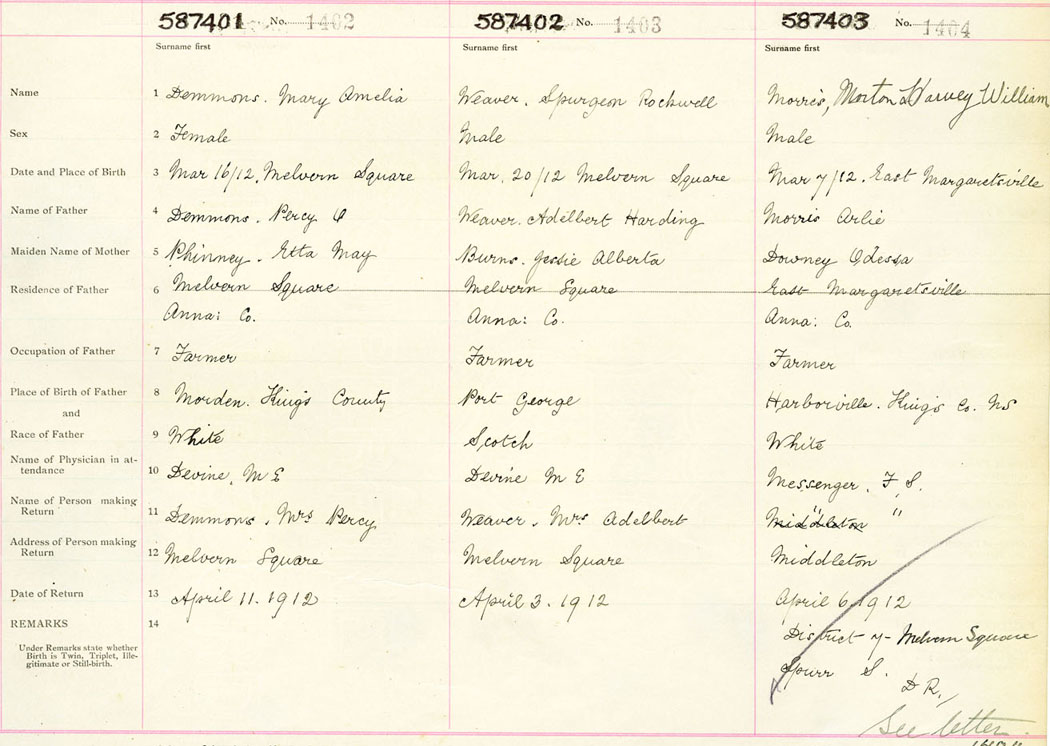 587401 No. 1402 587402 No. 1403 587403 No. 1404
Surname first Surname first Surname first
Name 1 Demmons. Mary Amelia Weaver. Spurgeon Rockwell Morris, Morton Harvey William
Sex 2 Female Male Male
Date and Place of Birth 3 Mar 16/12. Melvern Square Mar. 20/12 Melvern Square Mar 7/12. East Margaretsville
Name of Father 4 Demmons. Percy Weaver. Adelbert Harding Morris Arlie
Maiden Name of Mother 5 Phinney. Etta May Burns. Jessie Alberta Downey Odessa
Residence of Father 6 Melvern Square Melvern Square East Margaretsville
Anna: Co. Anna: Co. Anna: Co.
Occupation of Father 7 Farmer Farmer Farmer
Place of Birth of Father 8 Morden. King's County Port George Harborville. King's Co. NS
and
Race of Father 9 White Scotch White
Name of Physician in at-
tendance 10 Devine. M E Devine M E Messenger. F. S.
Name of Person making
Return 11 Demmons. Mrs Percy Weaver. Mrs Adelbert Middleton " "
Address of Person making
Return 12 Melvern Square Melvern Square Middleton
Date of Return 13 April 11. 1912 April 3. 1912 April 6. 1912
REMARKS 14
Under Remarks state whether
Birth is Twin, Triplet, Ille-
gitimate or Still-birth.
District 7- Melvern Square
Spurr S.
D R.
See letter.